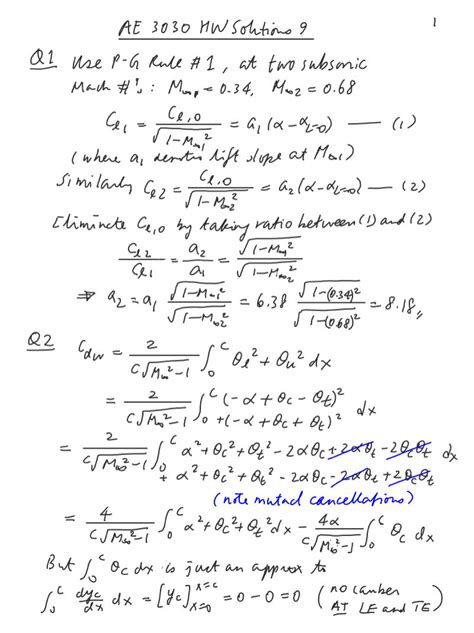 AE 3030 HW Solutions 9
1
Q1 Use P-G Rule #1, at two subsonic
Mach #'s: M∞1 = 0.34, M∞2 = 0.68
Cℓ1 = Cℓ,0 / √(1-M∞1²) = a₁(α-αL=0) — (1)
(where a₁ denotes lift slope at M∞1)
Similarly Cℓ2 = Cℓ,0 / √(1-M∞2²) = a₂(α-αL=0) — (2)
Eliminate Cℓ,0 by taking ratio between (1) and (2)
Cℓ2 / Cℓ1 = a₂ / a₁ = √(1-M∞1²) / √(1-M∞2²)
⇒ a₂ = a₁ √(1-M∞1²) / √(1-M∞2²) = 6.38 √(1-(0.34)²) / √(1-(0.68)²) = 8.18,,
Q2 Cdw = 2 / (C√(M∞²-1)) ∫₀^C θℓ² + θu² dx
= 2 / (C√(M∞²-1)) ∫₀^C (-α + θc - θt)² + (-α + θc + θt)² dx
= 2 / (C√(M∞²-1)) ∫₀^C α² + θc² + θt² - 2αθc + 2αθt - 2θcθt
+ α² + θc² + θt² - 2αθc - 2αθt + 2θcθt dx
(note mutual cancellations)
= 4 / (C√(M∞²-1)) ∫₀^C α² + θc² + θt² dx - 4α / (C√(M∞²-1)) ∫₀^C θc dx
But ∫₀^C θc dx is just an approx to
∫₀^C dyc/dx dx = [yc]x=0^x=c = 0 - 0 = 0 (no camber
AT LE and TE)